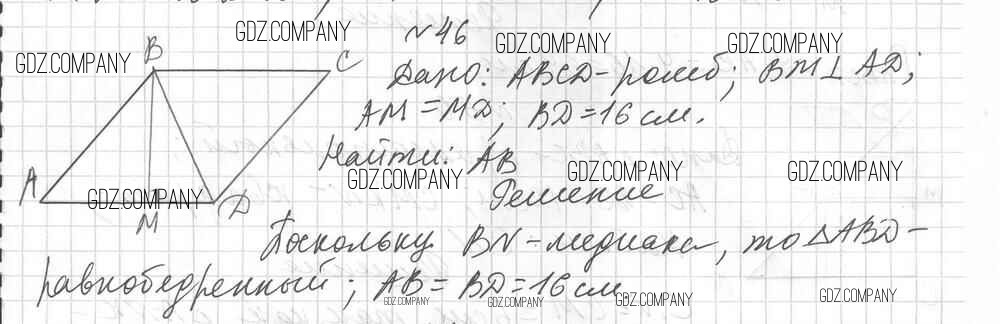 GDZ.COMPANY
№46
GDZ.COMPANY GDZ.COMPANY GDZ.COMPANY
B C
Дано: ABCD-ромб; BM⊥AD;
AM=MD; BD=16 см.
Найти: AB
A GDZ.COMPANY GDZ.COMPANY GDZ.COMPANY
GDZ.COMPANY D Решение
M
Поскольку BN-медиана, то △ABD-
равнобедренный; AB=BD=16 см
GDZ.COMPANY GDZ.COMPANY GDZ.COMPANY GDZ.COMPANY